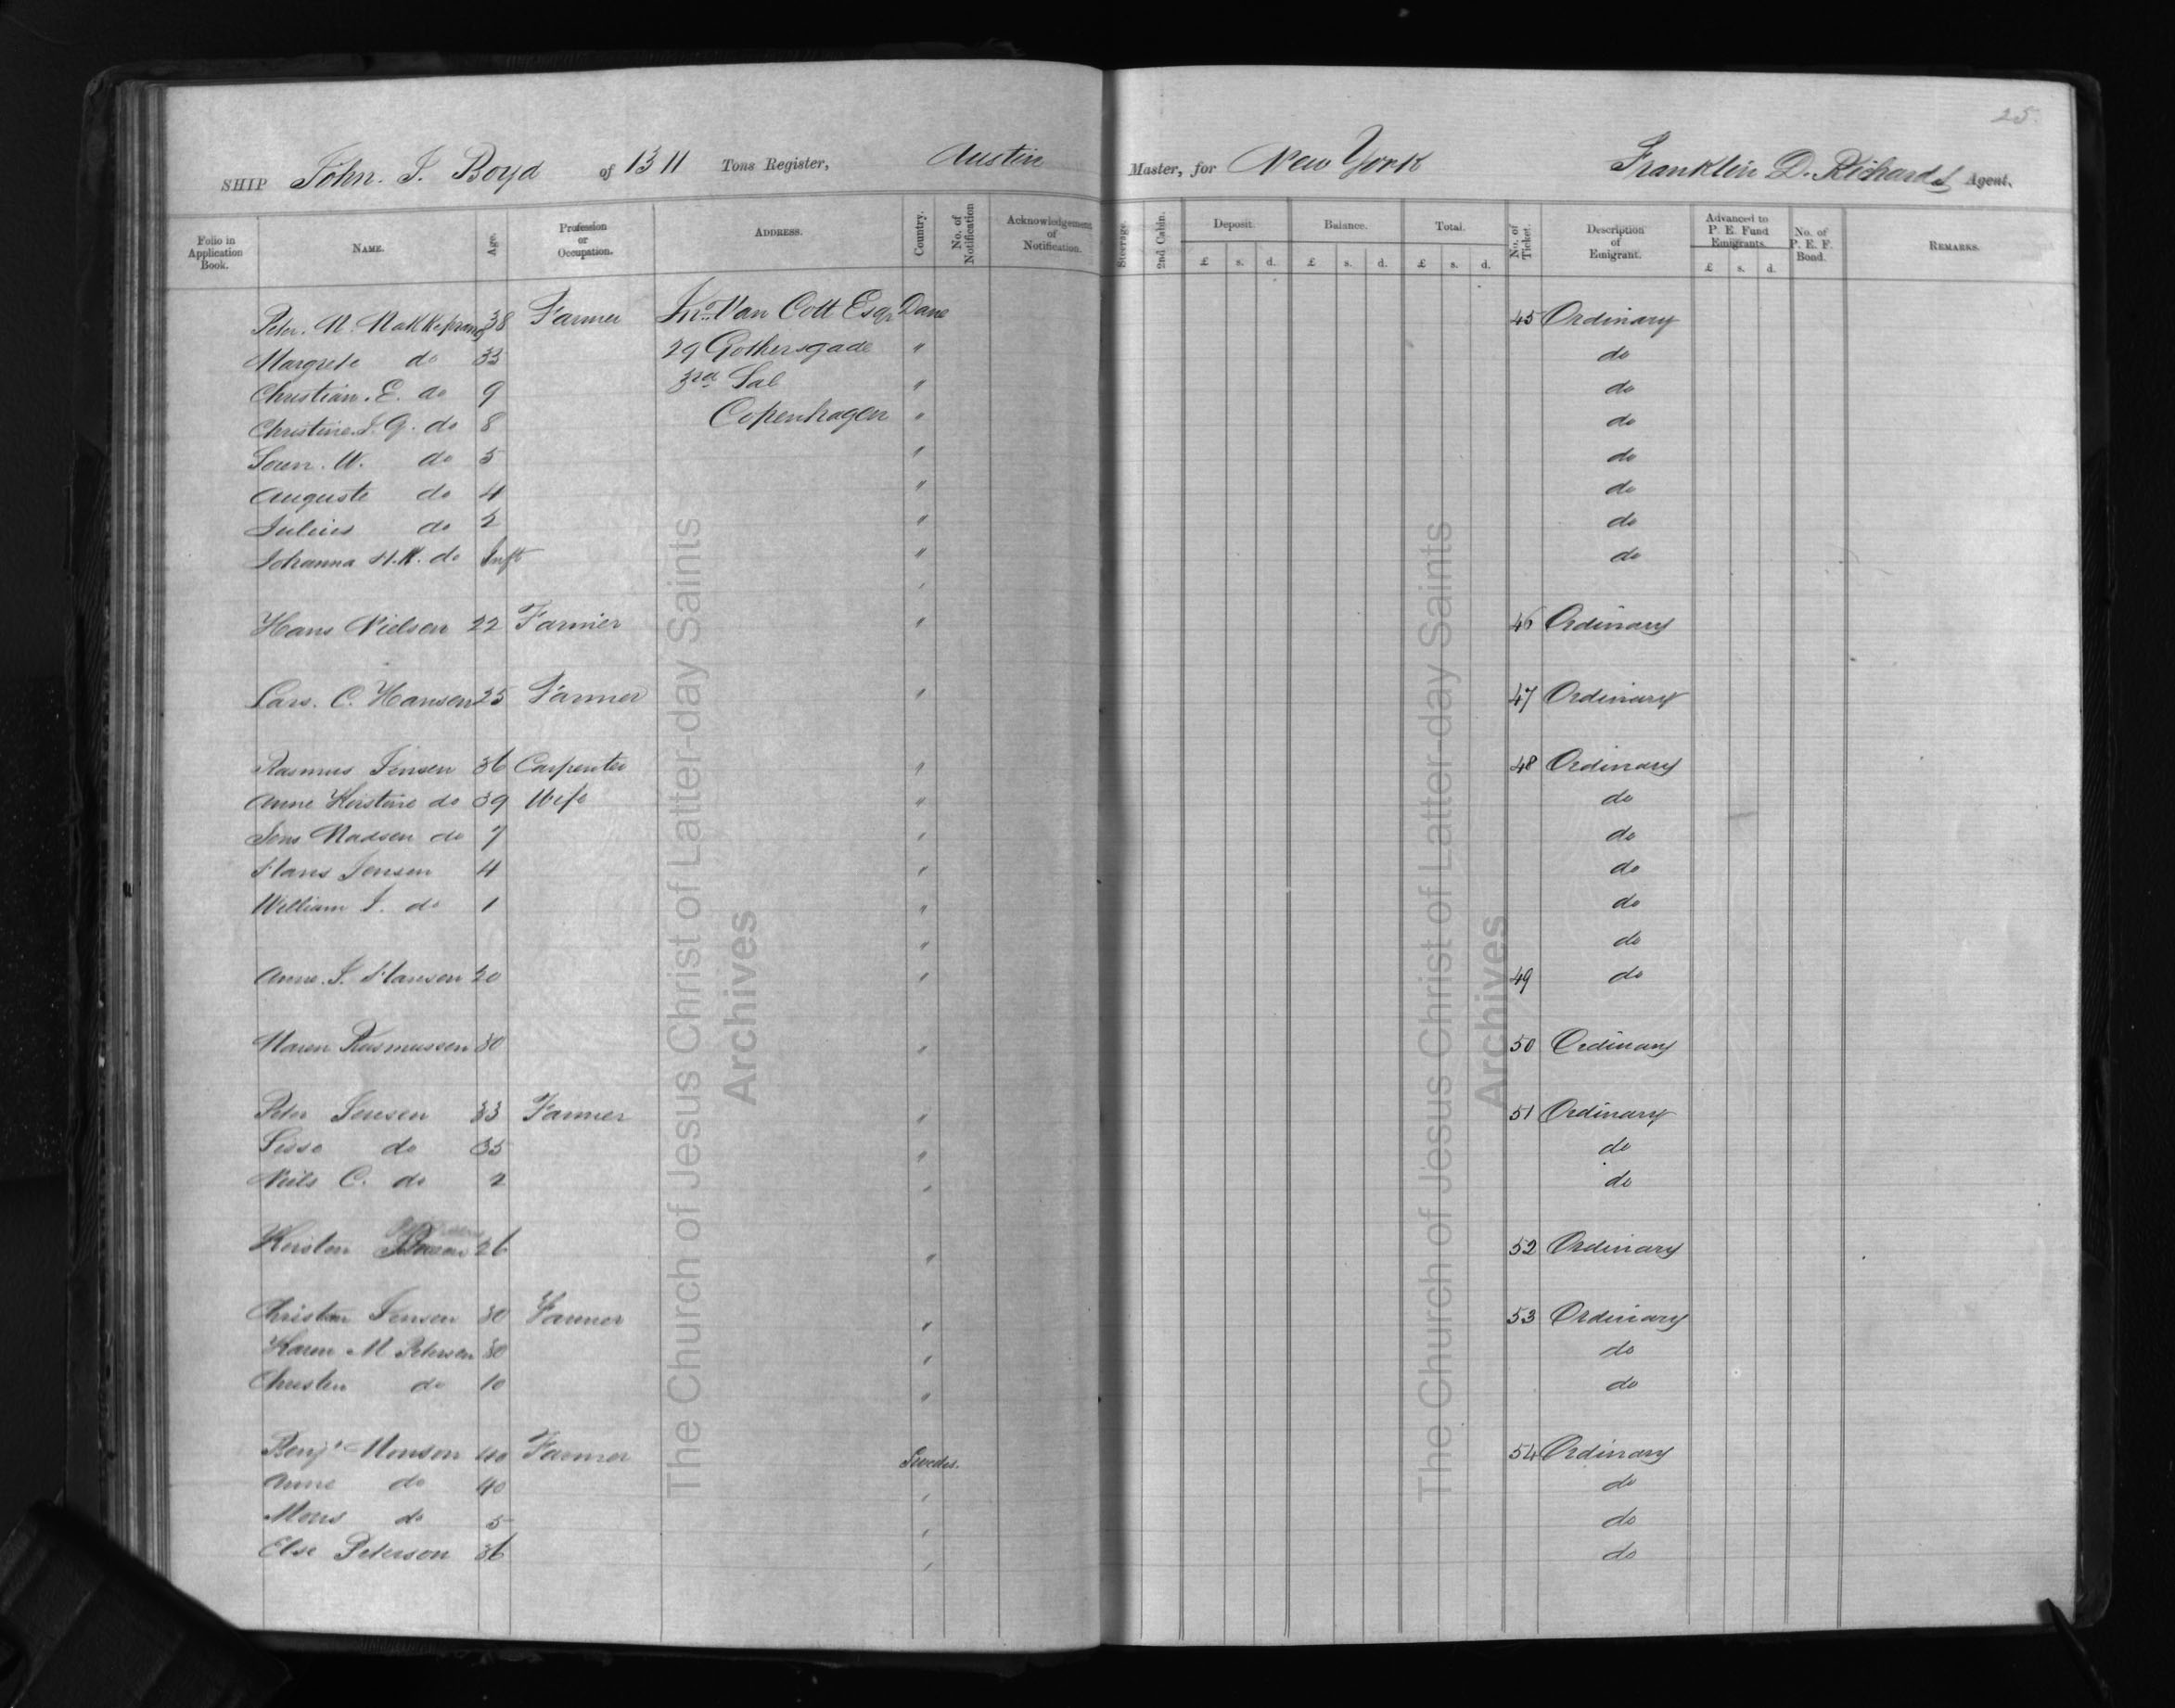 25.
SHIP John. J. Boyd of 1311 Tons Register, Austin Master, for New York Franklin D. Richards Agent.
Folio in Application Book. NAME. Age. Profession or Occupation. ADDRESS. Country. No. of Notification Acknowledgement of Notification. Steerage. 2nd Cabin. Deposit. £ s. d. Balance. £ s. d. Total. £ s. d. No. of Ticket. Description of Emigrant. Advanced to P. E. Fund Emigrants. £ s. d. No. of P. E. F. Bond. REMARKS.
Peter. N. 38 Farmer Jno. Van Cott Esqr Dane 45 Ordinary
Margrete do 33 29 Gothersgade " do
Christian. E. do 9 3rd Sal " do
Christine. J. G. do 8 Copenhagen " do
Soren. W. do 5 " do
Auguste do 4 " do
Julius do 2 " do
Johanna do Inft " do
"
Hans Nielsen 22 Farmer " 46 Ordinary
Lars. C. Hansen 25 Farmer " 47 Ordinary
Rasmus Jensen 36 Carpenter " 48 Ordinary
Anne Kerstine do 39 Wife " do
Jens Madsen do 7 " do
Hans Jensen 4 " do
William J. do 1 " do
" do
Anne. J. Hansen 20 " 49 do
Maren Rasmussen 30 " 50 Ordinary
Peter Jensen 33 Farmer " 51 Ordinary
Sisse do 35 " do
Niels C. do 2 " do
Kersten 26 " 52 Ordinary
Christen Jensen 30 Farmer " 53 Ordinary
Karen M Petersen 30 " do
Christen do 10 " do
Benj. Monson 40 Farmer Swedes. 54 Ordinary
Anne do 40 " do
Mons do 5 " do
Else Peterson 36 " do
The Church of Jesus Christ of Latter-day Saints
Archives
The Church of Jesus Christ of Latter-day Saints
Archives